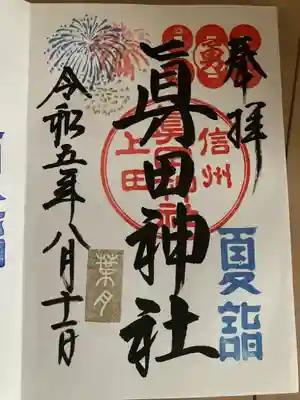 奉拝
夏詣
信州
上田
眞田神社
葉月
令和五年八月十一日